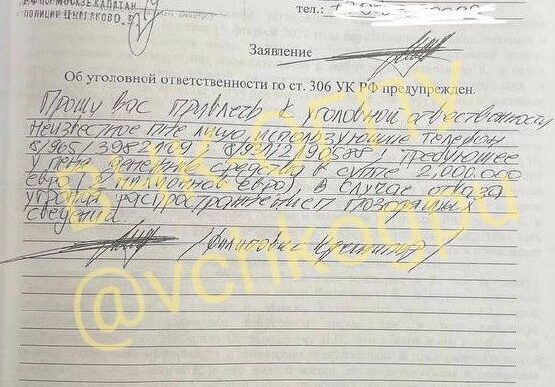 РФ ПО Г. МОСКВЕ КАПИТАН
ПОЛИЦИИ тел.:
Заявление
Об уголовной ответственности по ст. 306 УК РФ предупрежден.
Прошу вас привлечь к уголовной ответственности
неизвестное мне лицо, использующие телефон
8/965/3982109, требующее
у меня денежные средства в сумме 2,000.000
евро (2 миллионов евро), в случае отказа
угрожая распространением позорящих
сведений
@vchkogpu